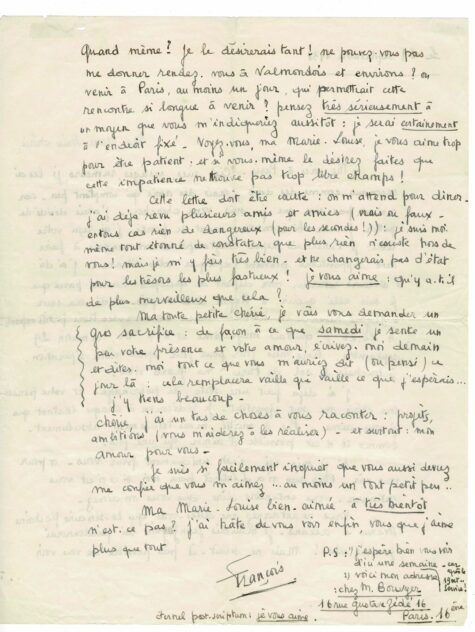 Quand même? Je le désirerais tant! ne pouvez-vous pas
me donner rendez-vous à Valmondois et environs? ou
venir à Paris, au moins un jour, qui permettrait cette
rencontre si longue à venir? pensez très sérieusement à
un moyen que vous m'indiqueriez aussitôt: je serai certainement
à l'endroit fixé - Voyez-vous, ma Marie-Louise, je vous aime trop
pour être patient: et si vous-même le désirez faites que
cette impatience ne trouve pas trop libre champs!
Cette lettre doit être courte: on m'attend pour dîner -
j'ai déjà revu plusieurs amis et amies (vrais ou faux -
en tous cas rien de dangereux (pour les secondes!)): je suis moi
même tout étonné de constater que plus rien n'existe hors de
vous! mais je m'y fais très bien - et ne changerais pas d'état
pour les trésors les plus fastueux! je vous aime: qu'y a-t-il
de plus merveilleux que cela?
Ma toute petite chérie, je vais vous demander un
gros sacrifice: de façon à ce que samedi je sente un
peu votre présence et votre amour, écrivez-moi demain
et dites-moi tout ce que vous m'auriez dit (ou pensé) ce
jour là: cela remplacera vaille que vaille ce que j'espérais...
j'y tiens beaucoup -
chérie, j'ai un tas de choses à vous raconter: projets,
ambitions (vous m'aiderez à les réaliser) - et surtout: mon
amour pour vous -
Je suis si facilement inquiet que vous aussi devez
me confier que vous m'aimez... au moins un tout petit peu..
Ma Marie-Louise bien-aimée, à très bientôt
n'est-ce pas? j'ai hâte de vous voir enfin, vous que j'aime
plus que tout
François
P.S: 1) j'espère bien vous voir
d'ici une semaine - car
après le
2) voici mon adresse
: chez M. Bouvyer
16 rue Gustave Zédé 16
Paris. 16ème
éternel post-scriptum: je vous aime.